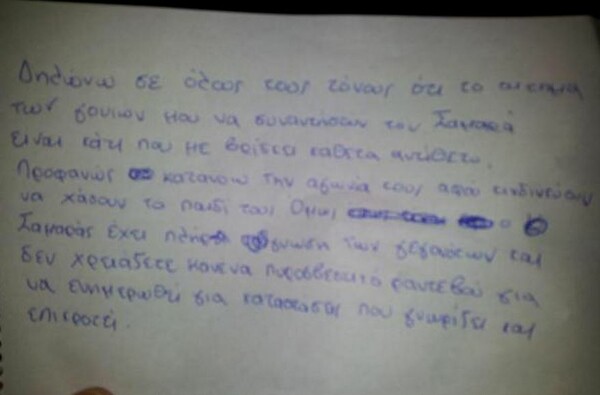 Δηλώνω σε όλους τους τόνους ότι το αίτημα
των γονιών μου να συναντήσουν τον Σαμαρά
είναι κάτι που με βρίσκει κάθετα αντίθετο.
Προφανώς κατανοώ την αγωνία τους αφού κινδινεύουν
να χάσουν το παιδί τους Όμως ο
Σαμαράς έχει πλήρη γνωση των γεγονότων και
δεν χρειάζετε κανενα πυροσβεστικό ραντεβού για
να ενημερωθεί για καταστασεις που γνωρίζει και
επικροτεί.